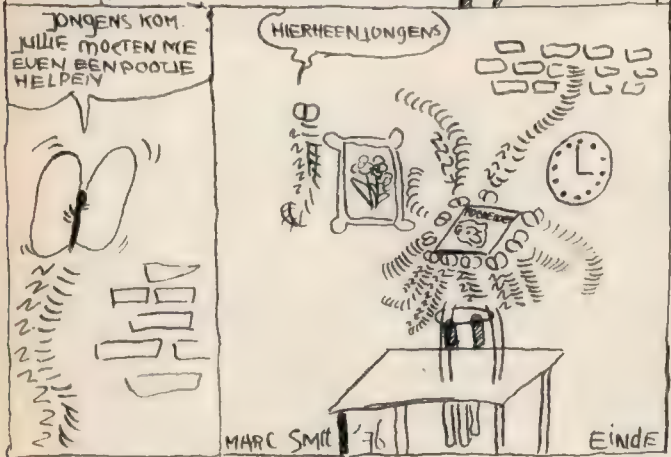 JONGENS KOM.
JULLIE MOETEN ME
EVEN EEN POOTJE
HELPEN
HIERHEEN JONGENS
MARC SMIT '76
EINDE